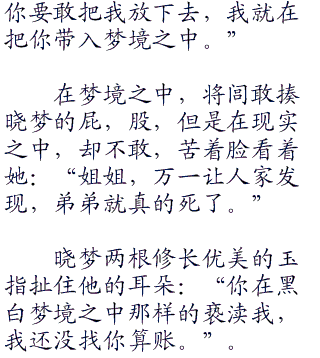 你要敢把我放下去，我就在
把你带入梦境之中。”
在梦境之中，将闾敢揍
晓梦的屁，股，但是在现实
之中，却不敢，苦着脸看着
她：“姐姐，万一让人家发
现，弟弟就真的死了。”
晓梦两根修长优美的玉
指扯住他的耳朵：“你在黑
白梦境之中那样的亵渎我，
我还没找你算账。”。